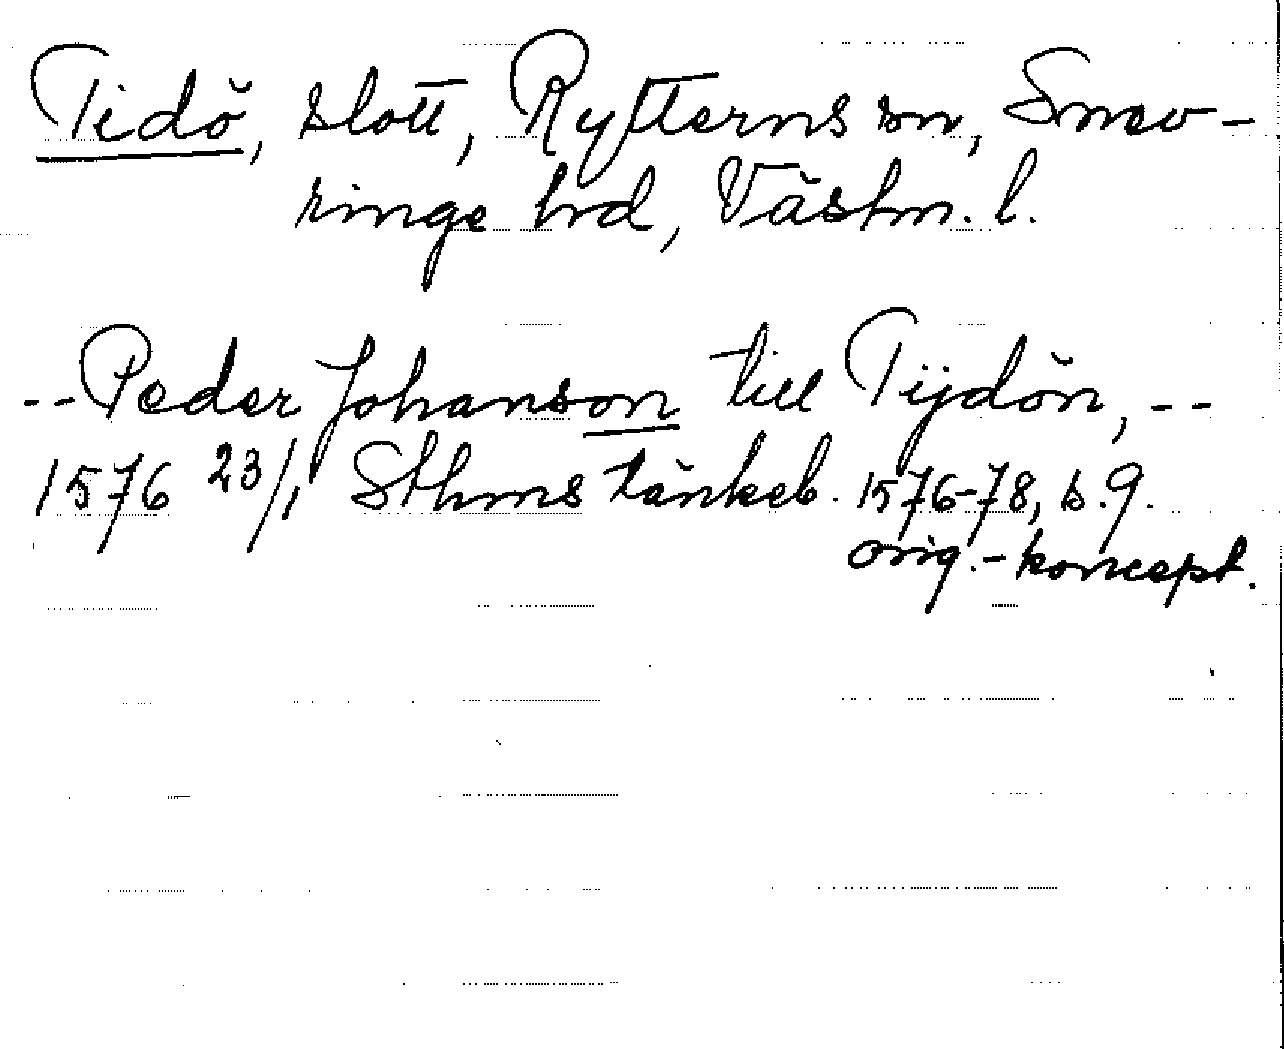 Tidö, slott, Rytterns sn, Snev-
ringe hd, Västm. l.
-- Peder Johanson till Tijdön, --
1576 23/1 Sthms tänkeb. 1576-78, s. 9.
orig.-koncept.